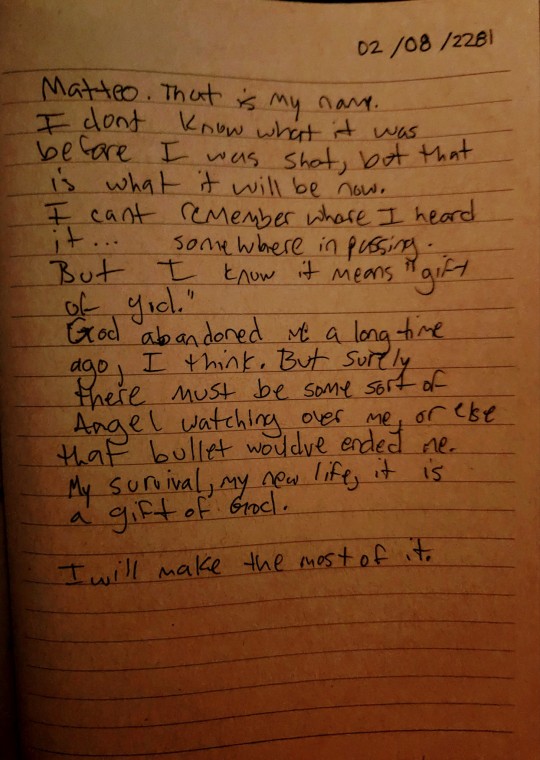 02/08/2281
Matteo. That is my name.
I dont know what it was
before I was shot, but that
is what it will be now.
I cant remember where I heard
it... somewhere in passing.
But I know it means "gift
of god."
God abandoned me a long time
ago, I think. But surely
there must be some sort of
Angel watching over me, or else
that bullet wouldve ended me.
My survival, my new life, it is
a gift of God.
I will make the most of it.